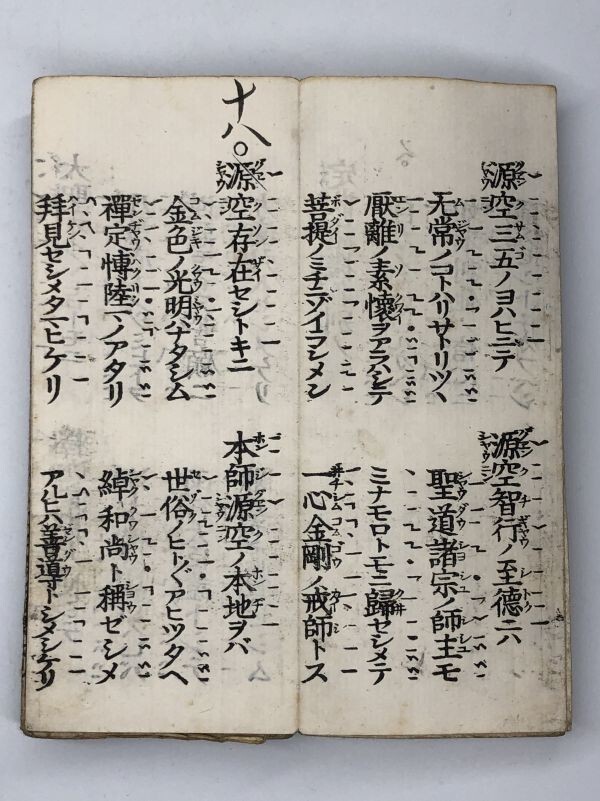 源空三五ノヨハヒニテ
无常ノコトハリサトリツヽ
厭離ノ素懷ヲアラハシテ
菩提ノミチニゾイラシメシ
源空智行ノ至德ニハ
聖道諸宗ノ師主モ
ミナモロトモニ歸セシメテ
一心金剛ノ戒師トス
十八○
源空存在セシトキニ
金色ノ光明ハナタシム
禪定博陸マノアタリ
拜見セシメタマヒケリ
本師源空ノ本地ヲバ
世俗ノヒトヾヽアヒツタヘ
綽和尚ト稱ゼシメ
アルヒハ善導トシメシケリ